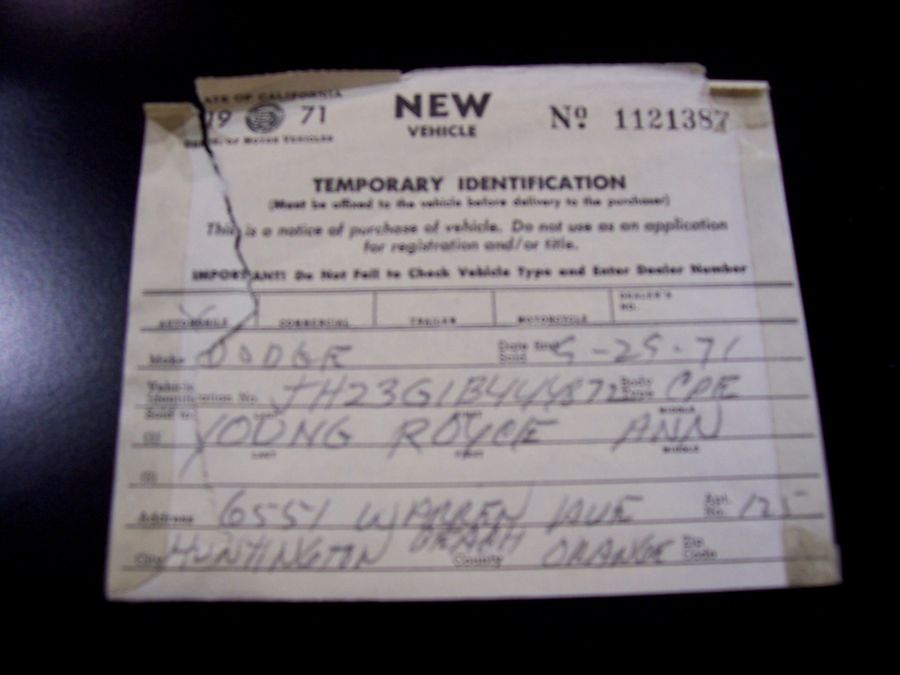 STATE OF CALIFORNIA
19 71
NEW
VEHICLE
Nº 1121387
DEPT. OF MOTOR VEHICLES
TEMPORARY IDENTIFICATION
(Must be affixed to the vehicle before delivery to the purchaser)
This is a notice of purchase of vehicle. Do not use as an application
for registration and/or title.
IMPORTANT! Do Not Fail to Check Vehicle Type and Enter Dealer Number
AUTOMOBILE COMMERCIAL TRAILER MOTORCYCLE DEALER'S NO.
Make DODGE Date First Sold 5-25-71
Vehicle Identification No. JH23G1B444872 Body Type CPE
Sold to: LAST FIRST MIDDLE
(1) YOUNG ROYCE ANN
LAST FIRST MIDDLE
(2)
Address 6551 WARREN AVE Apt. No. 125
City HUNTINGTON BEACH County ORANGE Zip Code